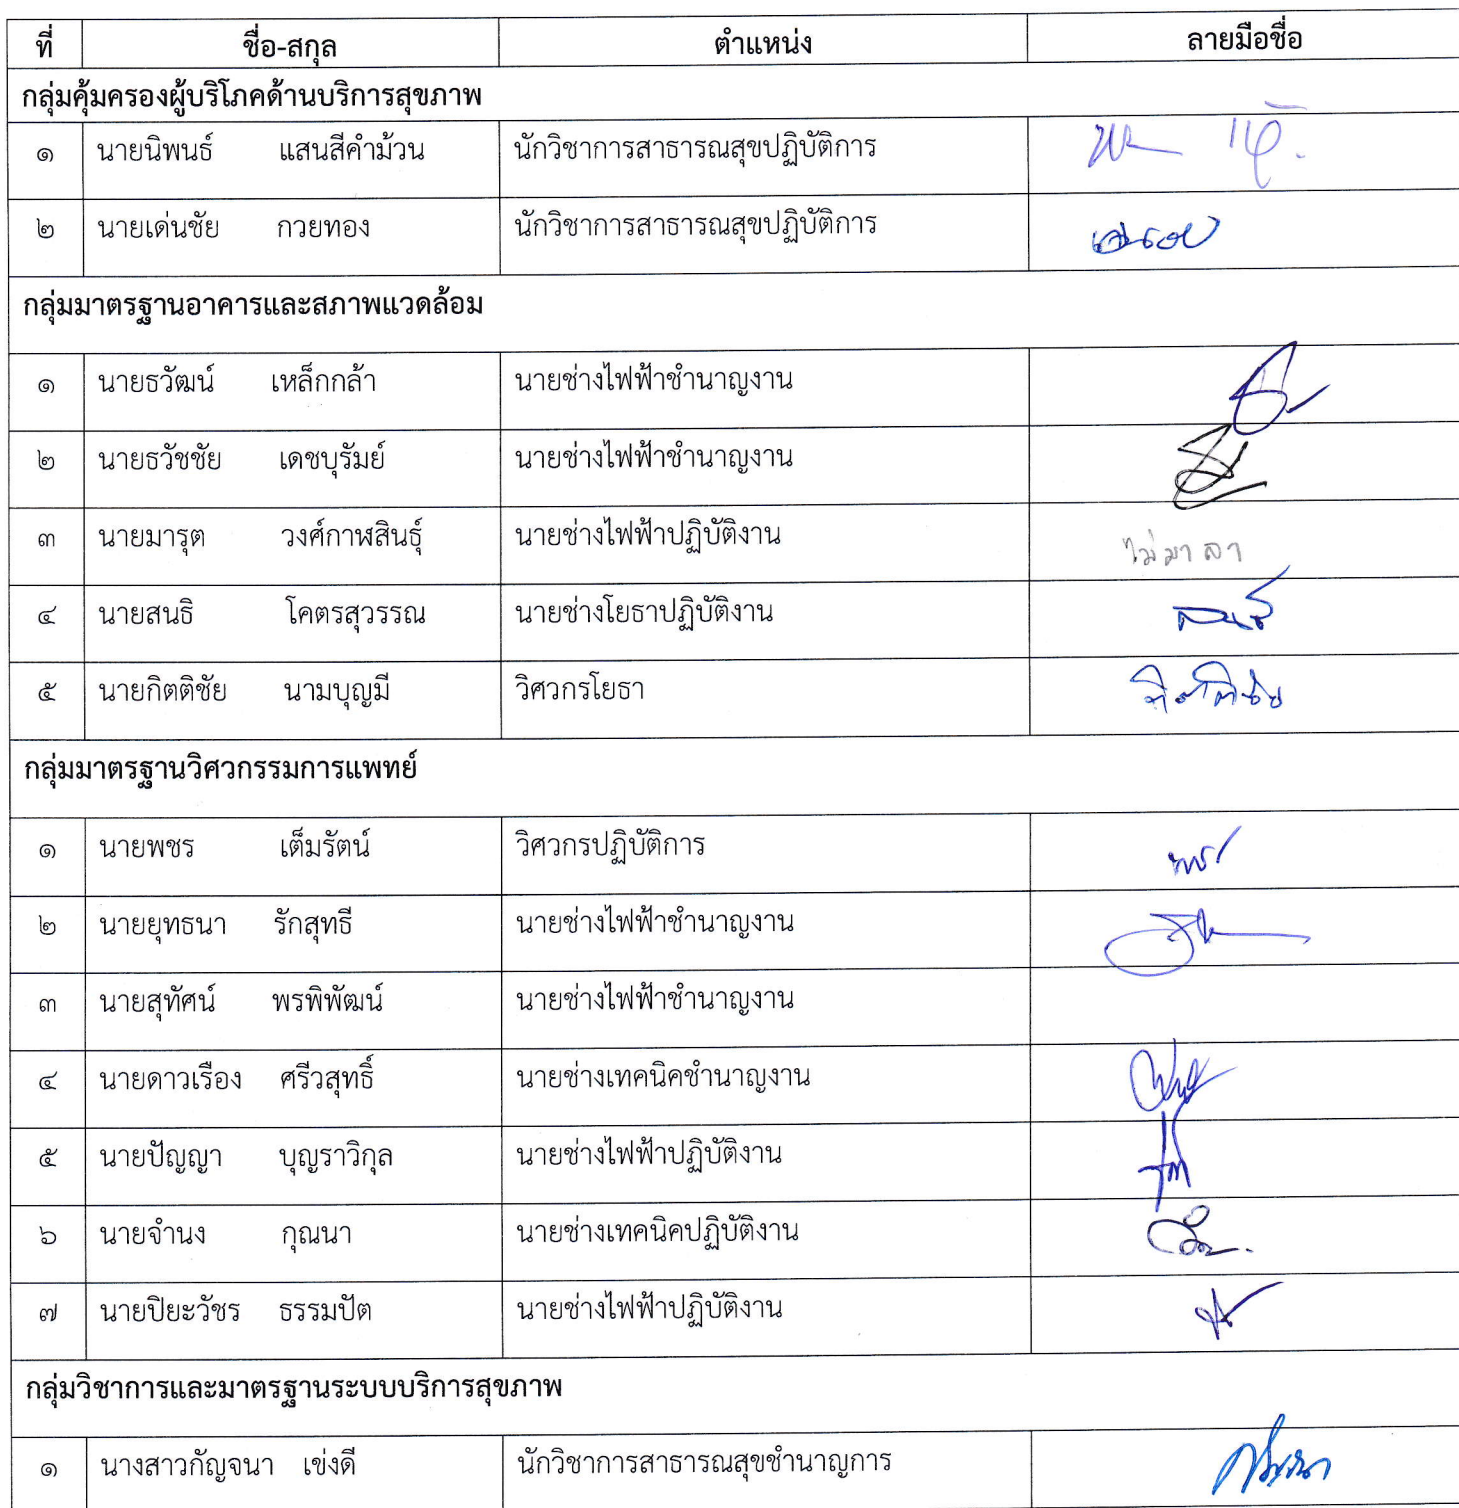 ที่ ชื่อ-สกุล ตำแหน่ง ลายมือชื่อ
กลุ่มคุ้มครองผู้บริโภคด้านบริการสุขภาพ
๑ นายนิพนธ์ แสนสีคำม้วน นักวิชาการสาธารณสุขปฏิบัติการ
๒ นายเด่นชัย กวยทอง นักวิชาการสาธารณสุขปฏิบัติการ
กลุ่มมาตรฐานอาคารและสภาพแวดล้อม
๑ นายธวัฒน์ เหล็กกล้า นายช่างไฟฟ้าชำนาญงาน
๒ นายธวัชชัย เดชบุรัมย์ นายช่างไฟฟ้าชำนาญงาน
๓ นายมารุต วงศ์กาฬสินธุ์ นายช่างไฟฟ้าปฏิบัติงาน ไม่มา ลา
๔ นายสนธิ โคตรสุวรรณ นายช่างโยธาปฏิบัติงาน
๕ นายกิตติชัย นามบุญมี วิศวกรโยธา กิตติชัย
กลุ่มมาตรฐานวิศวกรรมการแพทย์
๑ นายพชร เต็มรัตน์ วิศวกรปฏิบัติการ
๒ นายยุทธนา รักสุทธี นายช่างไฟฟ้าชำนาญงาน
๓ นายสุทัศน์ พรพิพัฒน์ นายช่างไฟฟ้าชำนาญงาน
๔ นายดาวเรือง ศรีวสุทธิ์ นายช่างเทคนิคชำนาญงาน
๕ นายปัญญา บุญราวิกุล นายช่างไฟฟ้าปฏิบัติงาน
๖ นายจำนง กุณนา นายช่างเทคนิคปฏิบัติงาน
๗ นายปิยะวัชร ธรรมปัต นายช่างไฟฟ้าปฏิบัติงาน
กลุ่มวิชาการและมาตรฐานระบบบริการสุขภาพ
๑ นางสาวกัญจนา เข่งดี นักวิชาการสาธารณสุขชำนาญการ